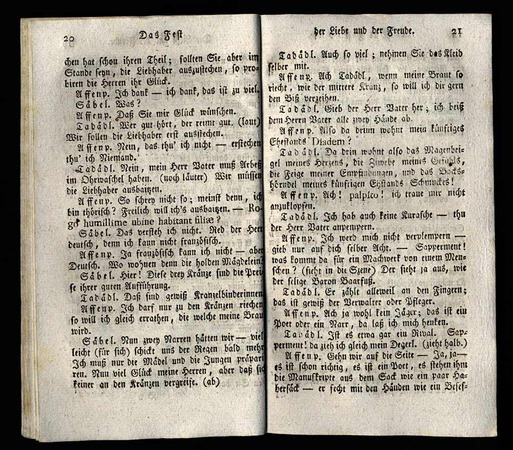 20 Das Fest
chen hat schon ihren Theil; sollten Sie aber im
Stande seyn, die Liebhaber auszustechen, so pro-
biren die Herren ihr Glück.
Affenp. Ich dank — ich dank, das ist zu viel.
Säbel. Was?
Affenp. Daß Sie mir Glück wünschen.
Tadädl. Wer gut hört, der reimt gut. (laut)
Wir sollen die Liebhaber erst ausstechen.
Affenp. Nein, das thu' ich nicht — erstechen
thu' ich Niemand.
Tadädl. Nein, mein Herr Vater muß Arbeß
im Ohrwaschel haben. (noch läuter) Wir müssen
die Liebhaber ausbaitzen.
Affenp. So schrey nicht so; meinst denn, ich
bin thörisch? Freilich will ich's ausbaitzen. — Ro-
go humillime ubine habitant filiæ?
Säbel. Das versteh ich nicht. Red der Herr
deutsch, denn ich kann nicht französisch.
Affenp. Ja französisch kann ich nicht — aber
Deutsch. Wo wohnen denn die holden Mägdelein?
Säbel. Hier! Diese drey Kränze sind die Prei-
se ihrer guten Aufführung.
Tadädl. Daß sind gewiß Kranzelbinderinnen.
Affenp. Ich darf nur zu den Kränzen riechen,
so will ich gleich errathen, die welche meine Braut
wird.
Säbel. Nun zwey Narren hätten wir — viel-
leicht (für sich) schickt uns der Regen bald mehr.
Ich muß nur die Mädel und die Jungen präpari-
ren. Nun viel Glück meine Herren, aber daß sich
keiner an den Kränzen vergreife. (ab)
der Liebe und der Freude. 21
Tadädl. Auch so viel; nehmen Sie das Kleid
selber mit.
Affenp. Ach Tadädl, wenn meine Braut so
riecht, wie der mittere Kranz, so will ich dir gern
den Biß verzeihen.
Tadädl. Gieb der Herr Vater her; ich beiß
dem Herrn Vater alle zwey Hände ab.
Affenp. Also da drinn wohnt mein künftiges
Ehestands Diadem?
Tadädl. Da drin wohnt also das Magenbei-
gel meines Herzens, die Zwebe meines
die Feige meiner Empfindungen, und das Bocks-
hörndel meines künftigen Ehstands Schmuckes!
Affenp. Ach! palpito! ich traue mir nicht
anzuklopfen.
Tadädl. Ich hab auch keine Kurasche — thu
der Herr Vater anpempern.
Affenp. Ich werd mich nicht verplempern —
gieb nur auf dich selber Acht. — Sapperment!
was kommt da für ein Machwerk von einem Men-
schen? (sieht in die Szene) Der sieht ja aus, wie
der selige Baron Baarfuß.
Tadädl. Er zählt alleweil an den Fingern;
das ist gewiß der Verwalter oder Pfleger.
Affenp. Ach ja wohl kein Jäger; das ist ein
Poet oder ein Narr, da laß ich mich henken.
Tadädl. Ist es etwa gar ein Rival. Sap-
perment! da zieh ich gleich mein Degerl. (zieht halb.)
Affenp. Gehn wir auf die Seite — Ja, ja—
es ist schon richtig, es ist ein Poet, es stehen ihm
die Manuskripte aus dem Sack wie ein paar Ha-
bersäck — er fecht mit den Händen wie ein Besess-